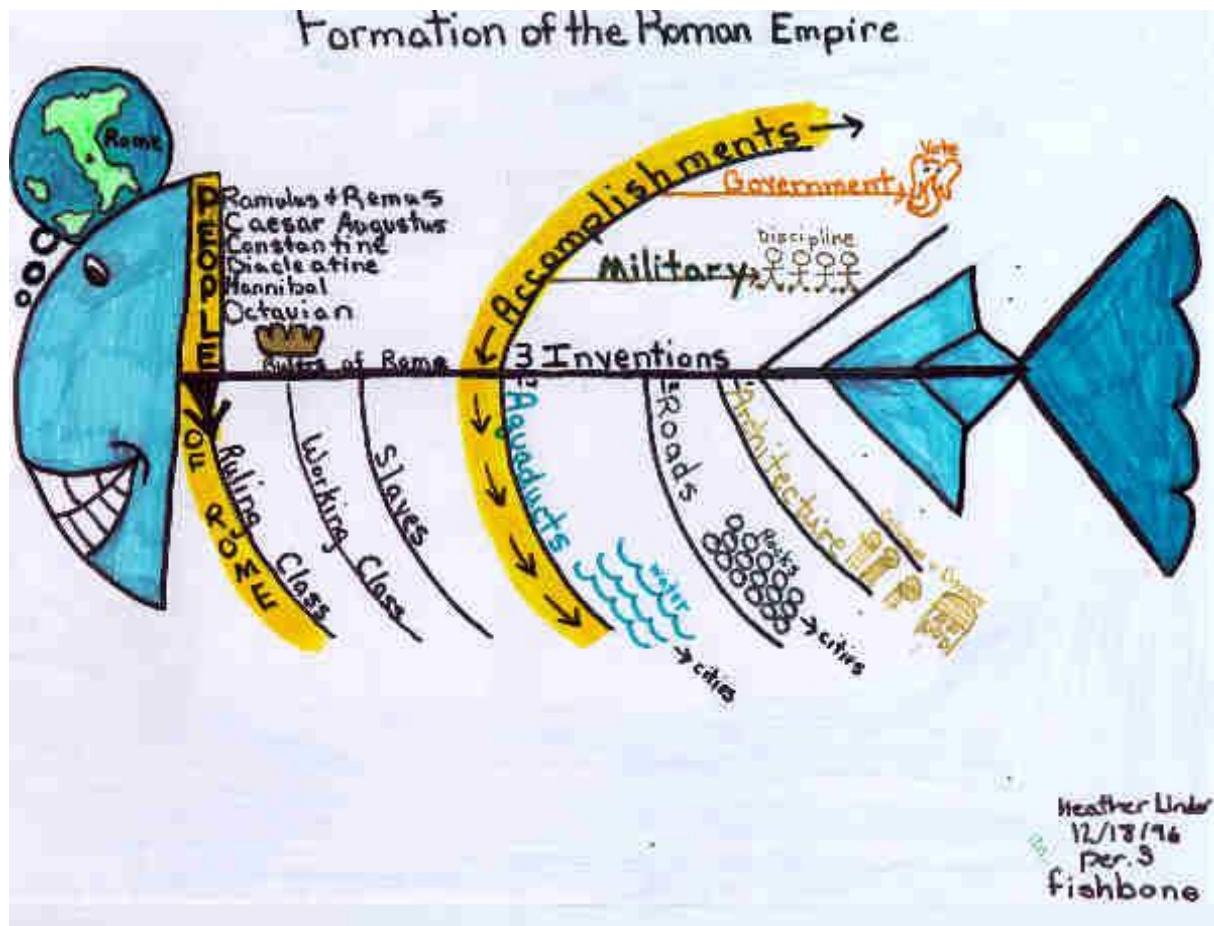 Formation of the Roman Empire
Rome
PEOPLE
Ramulus + Remus
Caesar Augustus
Constantine
Diacleatine
Hannibal
Octavian
Rulers of Rome
OF ROME
Ruling Class
Working Class
Slaves
Accomplishments
Government
Vote
Military
Discipline
3 Inventions
Aquaducts
water
cities
Roads
Rocks
cities
Architecture
Heather Linder
12/18/96
per. 3
fishbone